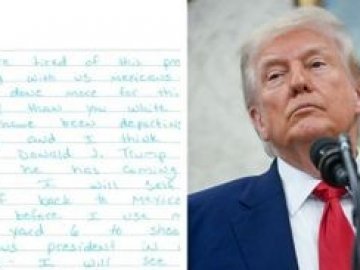 tired of this pre
with us mexicans
done more for thi
than you white
have been deporting
and I think
Donald J. Trump
he has coming
I will self
back to Mexico
before I use m
yard 6 to shoo
president in
I will see